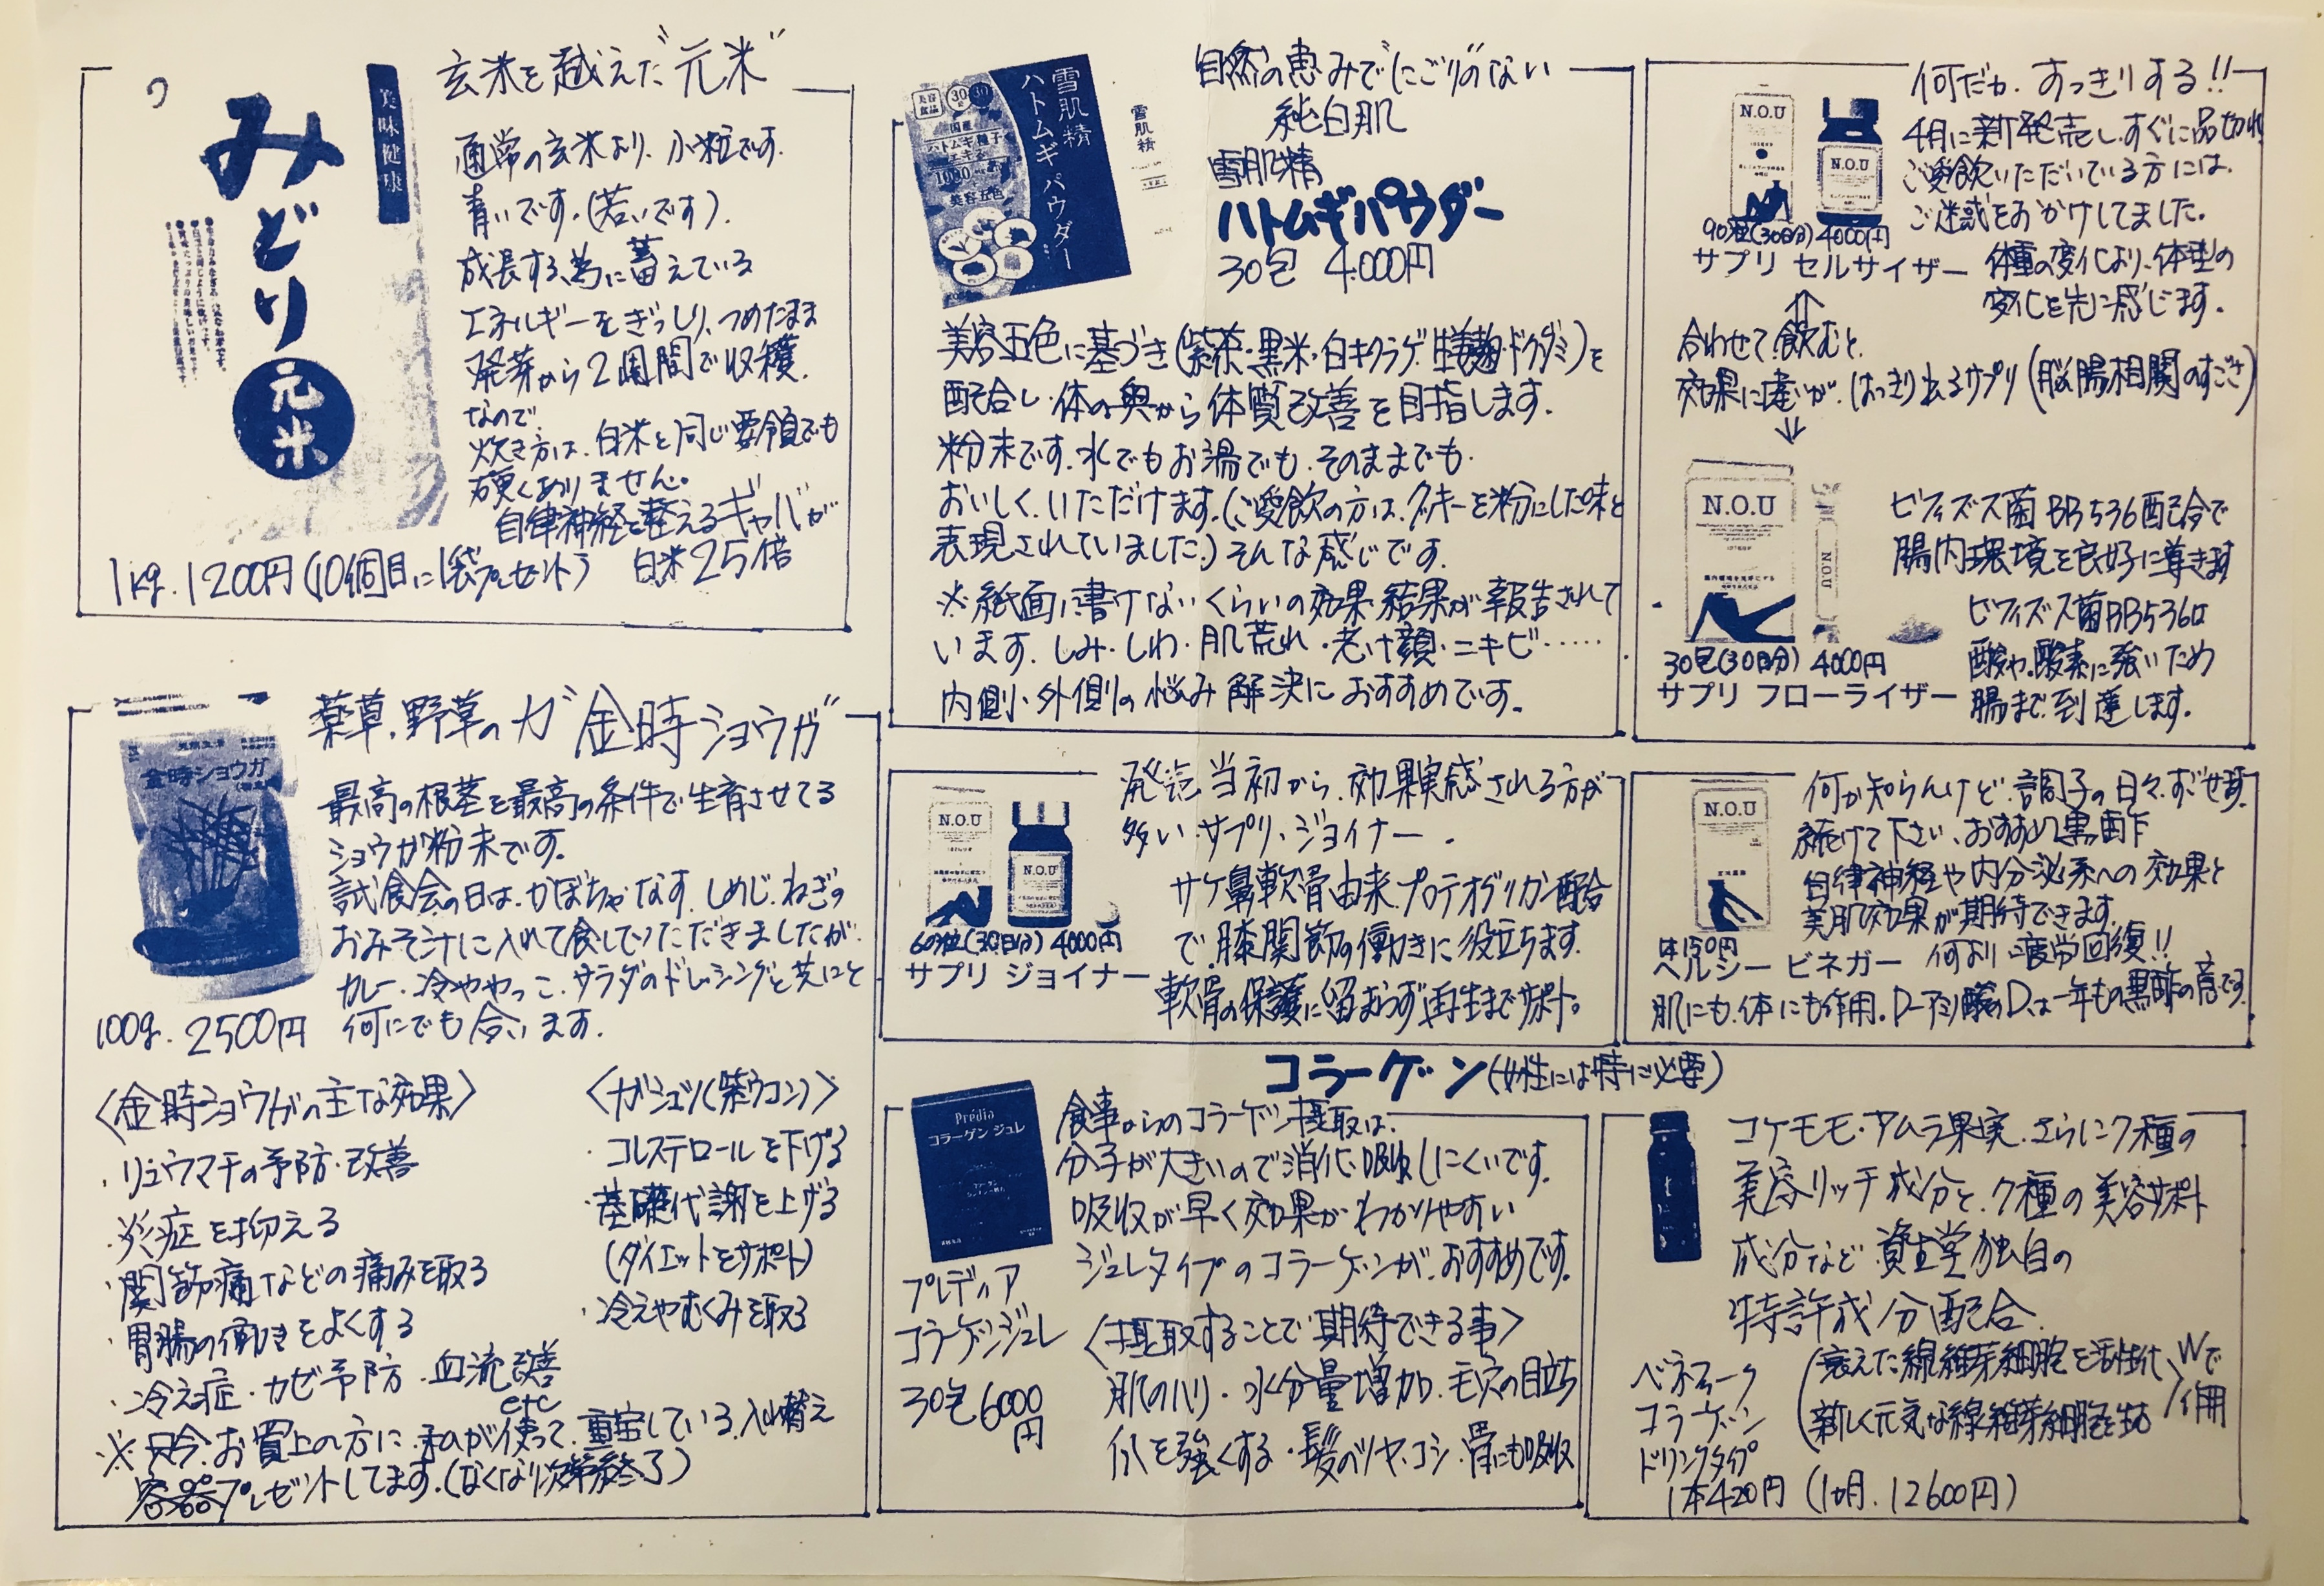 玄米を越えた"元米"
美味健康
みどり
元米
通常の玄米より、小粒です。
青いです。(若いです)。
成長する為に蓄えている
エネルギーをぎっしり、つめたまま
発芽から2週間で収穫。
なので、
炊き方は、白米と同じ要領でも
硬くありません。
自律神経を整えるギャバが
1kg. 1200円(10個目に1袋プレゼント) 白米25倍
薬草.野草の力"金時ショウガ"
金時ショウガ
最高の根茎を最高の条件で生育させてる
ショウガ粉末です。
試食会の日は、かぼちゃ、なす、しめじ、ねぎの
おみそ汁に入れて食していただきましたが、
カレー・冷ややっこ・サラダのドレッシングと共にと
何にでも合います。
100g. 2500円
〈金時ショウガの主な効果〉
・リュウマチの予防・改善
・炎症を抑える
・関節痛などの痛みを取る
・胃腸の働きをよくする
・冷え症・カゼ予防・血流改善
etc
〈ガジュツ(紫ウコン)〉
・コレステロールを下げる
・基礎代謝を上げる
(ダイエットをサポート)
・冷えやむくみを取る
※只今、お買上の方に、私が使って、重宝している、入れ替え
容器プレゼントしてます。(なくなり次第終了)
自然の恵みで"にごり"のない
純白肌
雪肌精
ハトムギパウダー
30包 4.000円
美容食品
30
国産
ハトムギ種子
エキス
美容五色
雪肌精
ハトムギ パウダー
雪肌精
美容五色に基づき(紫茶・黒米・白キクラゲ・生姜麹・ドクダミ)を
配合し・体の奥から体質改善を目指します。
粉末です.水でもお湯でも.そのままでも.
おいしく.いただけます。(ご愛飲の方は、クッキーを粉にした味と
表現されていました。)そんな感じです。
※紙面に書けないくらいの効果・結果が報告されて
います.しみ・しわ・肌荒れ・老け顔・ニキビ……
内側・外側の悩み解決におすすめです。
何だか.すっきりする!!
N.O.U
N.O.U
4月に新発売し.すぐに品切れ
ご愛飲いただいている方には、
ご迷惑をおかけしてました。
体重の変化より、体型の
変化を先に感じます。
90粒(30日分) 4000円
サプリ セルサイザー
合わせて飲むと、
効果に違いが、はっきり出るサプリ(脳腸相関のすごさ)
N.O.U
N.O.U
ビフィズス菌BB536配合で
腸内環境を良好に導きます
ビフィズス菌BB536は
酸や、酸素に強いため
腸まで、到達します。
30包(30日分) 4000円
サプリ フローライザー
発売当初から、効果実感される方が
多い、サプリ、ジョイナー.
N.O.U
N.O.U
サケ鼻軟骨由来.プロテオグリカン配合
で.膝関節の働きに役立ちます。
軟骨の保護に留まらず再生までサポート。
60粒(30日分) 4000円
サプリ ジョイナー
何か知らんけど、調子の日々.すごせます.
続けて下さい、おすすめ黒酢
N.O.U
自律神経や内分泌系への効果と
美肌効果が期待できます.
何より.疲労回復!!
1本150円
ヘルシー ビネガー
肌にも体にも作用。D-アミノ酸のDは一年もの黒酢の意です.
コラーゲン(女性には特に必要)
Prédia
コラーゲン ジュレ
食事からのコラーゲン摂取は、
分子が大きいので消化・吸収しにくいです。
吸収が早く効果がわかりやすい
ジュレタイプのコラーゲンが、おすすめです。
プレディア
コラーゲンジュレ
30包 6000円
〈摂取することで期待できる事〉
肌のハリ・水分量増加・毛穴の目立ち
爪を強くする・髪のツヤ・コシ・骨にも吸収
コケモモ・アムラ果実・さらに7種の
美容リッチ成分と、7種の美容サポート
成分など、資生堂独自の
特許成分配合
ベネフィーク
コラーゲン
ドリンクタイプ
(衰えた線維芽細胞を活性化
新しく元気な線維芽細胞を生む)Wで作用
1本420円(1ヶ月.12600円)